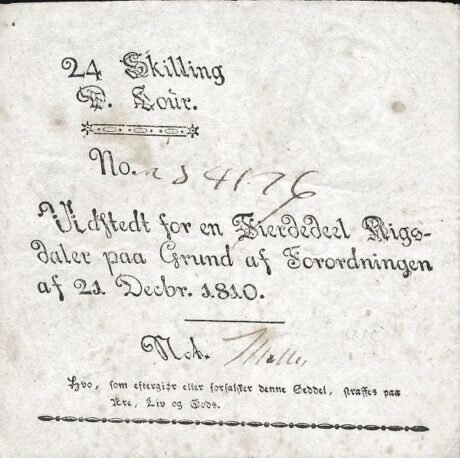 24 Skilling
D. Cour.
No. 254176
Vidstedt for en Fierdedeel Rigs-
daler paa Grund af Forordningen
af 21 Decbr. 1810.
Not. Møller
Hvo, som eftergiør eller forfalsker denne Seddel, straffes paa
Ære, Liv og Gods.